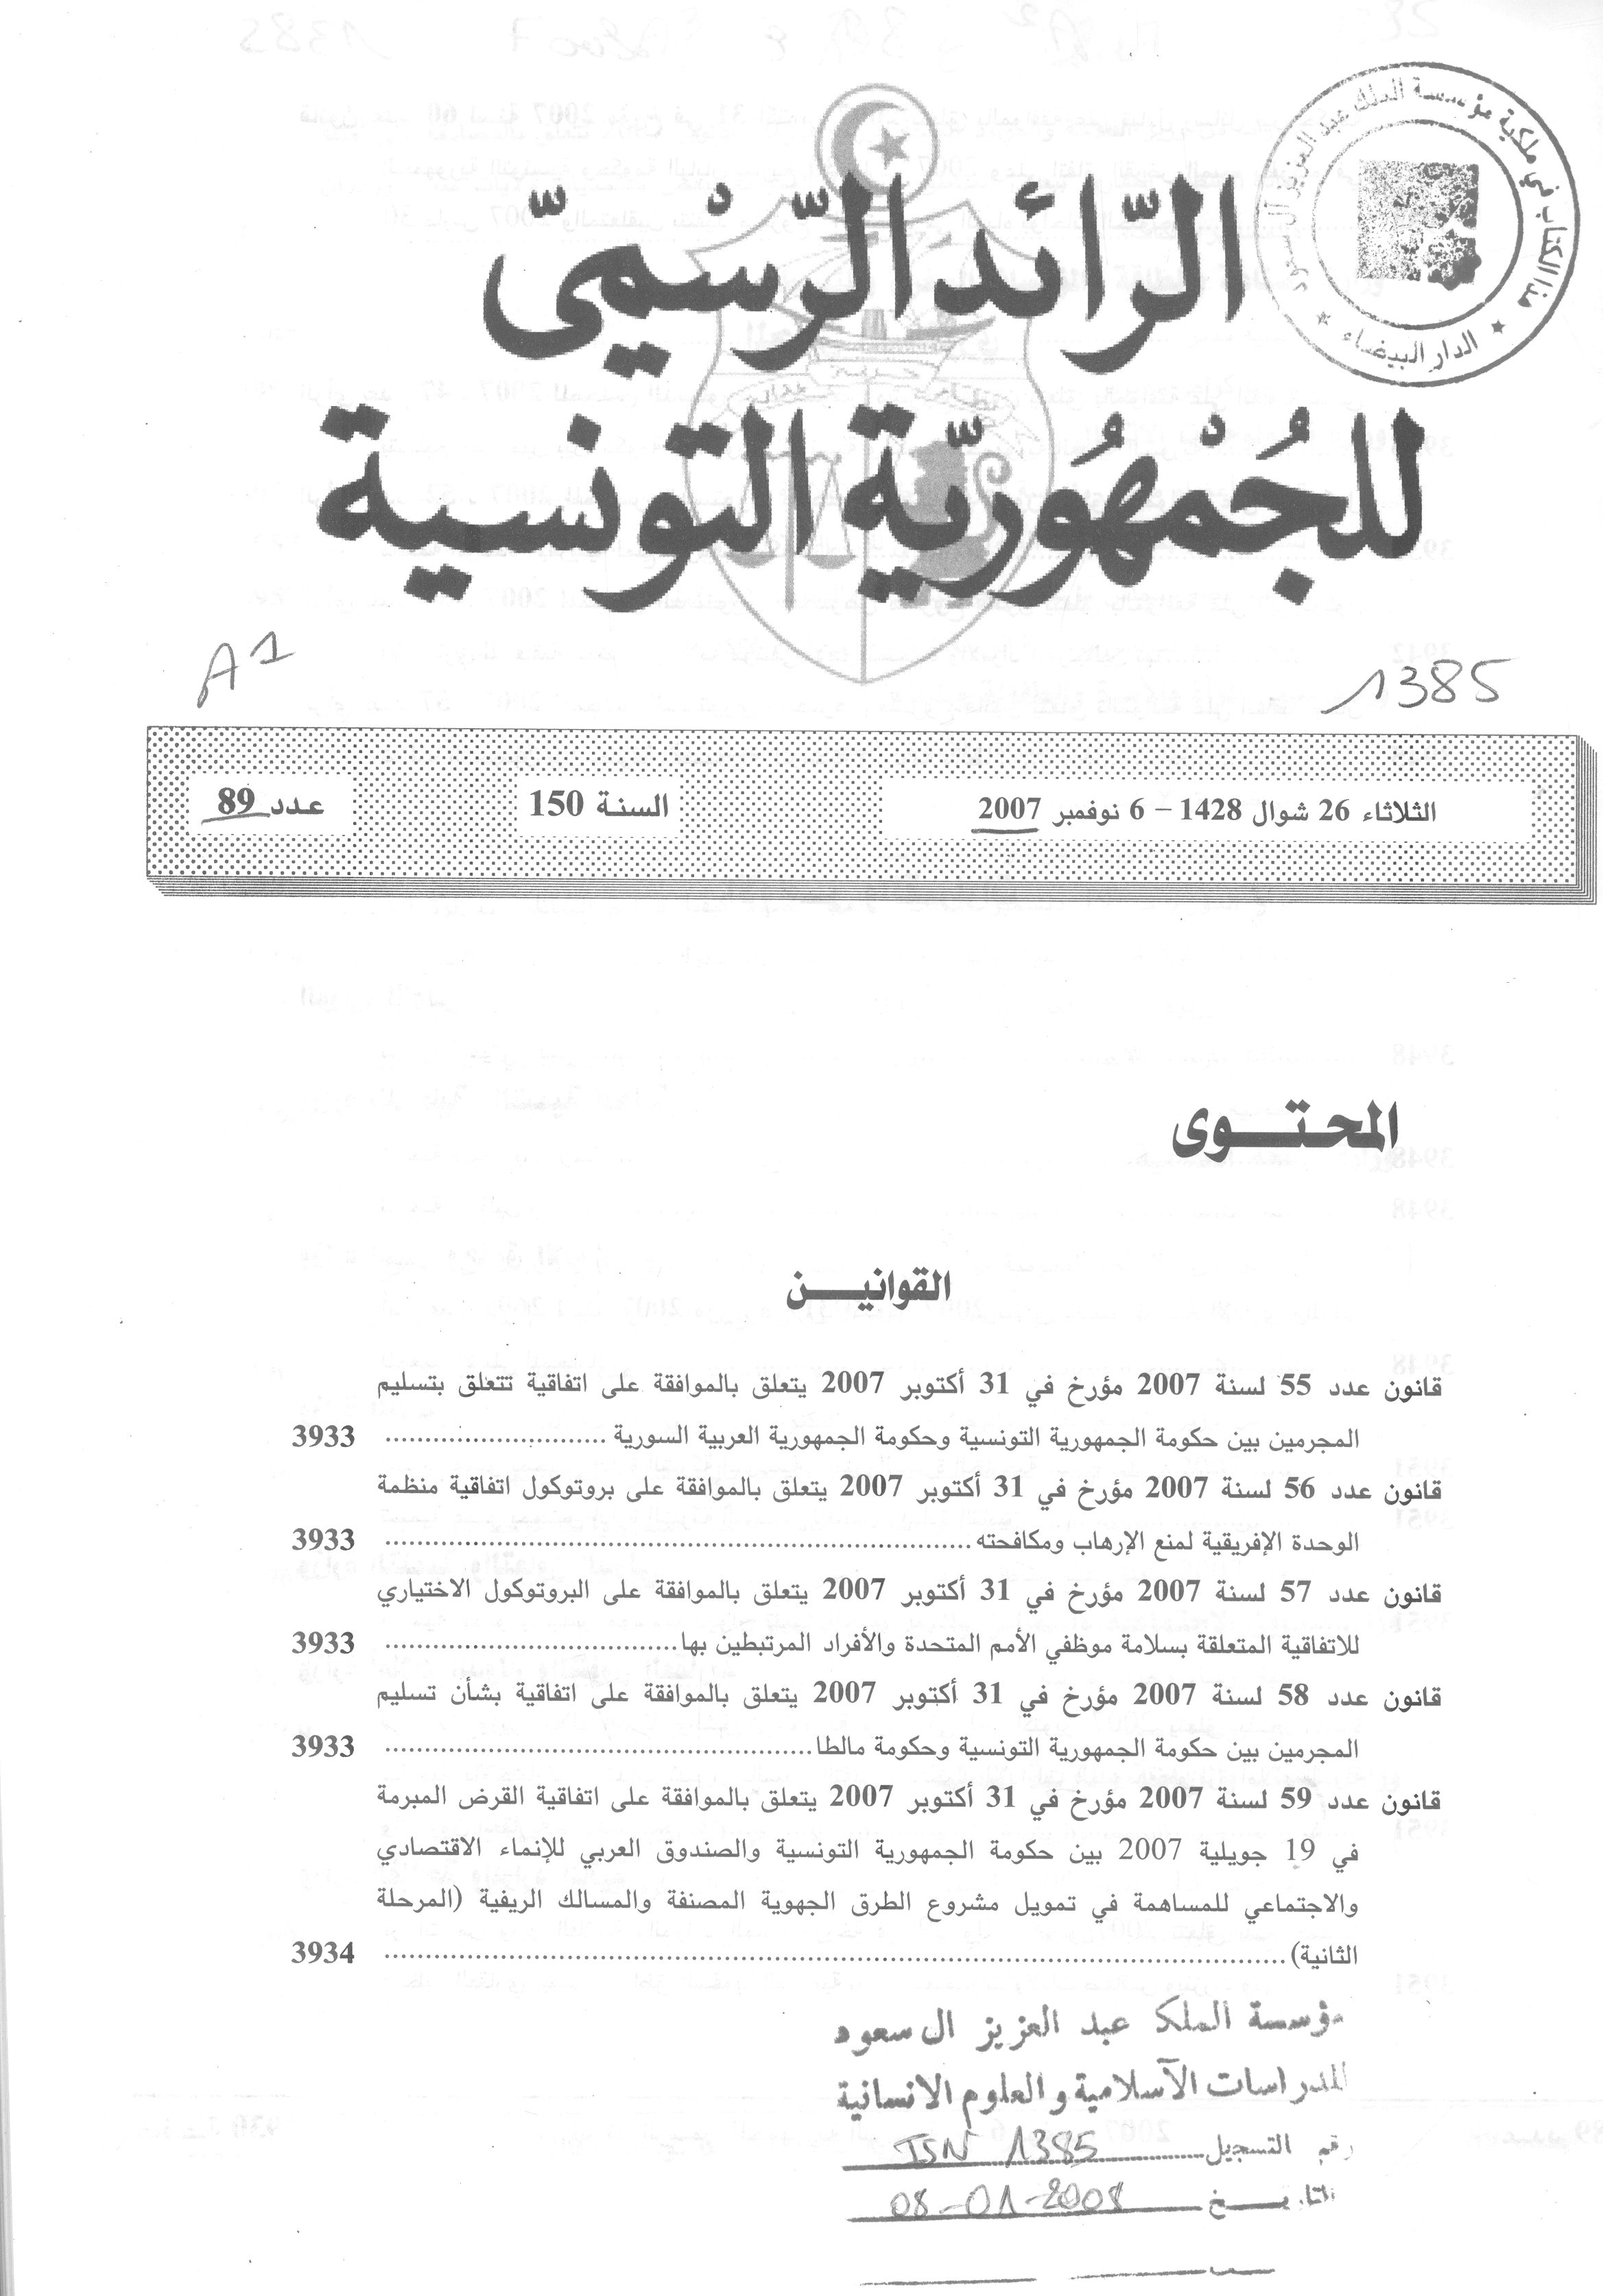 هذا الكتاب في ملكية مؤسسة الملك عبد العزيز آل سعود
الدار البيضاء
الرّائد الرّسْميّ
للجُمْهُوريّة التونسية
A1
1385
الثلاثاء 26 شوال 1428 – 6 نوفمبر 2007
السنة 150
عدد 89
المحتوى
القوانين
قانون عدد 55 لسنة 2007 مؤرخ في 31 أكتوبر 2007 يتعلق بالموافقة على اتفاقية تتعلق بتسليم
المجرمين بين حكومة الجمهورية التونسية وحكومة الجمهورية العربية السورية ............................ 3933
قانون عدد 56 لسنة 2007 مؤرخ في 31 أكتوبر 2007 يتعلق بالموافقة على بروتوكول اتفاقية منظمة
الوحدة الإفريقية لمنع الإرهاب ومكافحته ............................ 3933
قانون عدد 57 لسنة 2007 مؤرخ في 31 أكتوبر 2007 يتعلق بالموافقة على البروتوكول الاختياري
للاتفاقية المتعلقة بسلامة موظفي الأمم المتحدة والأفراد المرتبطين بها ............................ 3933
قانون عدد 58 لسنة 2007 مؤرخ في 31 أكتوبر 2007 يتعلق بالموافقة على اتفاقية بشأن تسليم
المجرمين بين حكومة الجمهورية التونسية وحكومة مالطا ............................ 3933
قانون عدد 59 لسنة 2007 مؤرخ في 31 أكتوبر 2007 يتعلق بالموافقة على اتفاقية القرض المبرمة
في 19 جويلية 2007 بين حكومة الجمهورية التونسية والصندوق العربي للإنماء الاقتصادي
والاجتماعي للمساهمة في تمويل مشروع الطرق الجهوية المصنفة والمسالك الريفية (المرحلة
الثانية) ............................ 3934
مؤسسة الملك عبد العزيز ال سعود
للدراسات الآسلامية والعلوم الانسانية
رقم التسجيل ISN 1385
التاريخ 08-01-2008